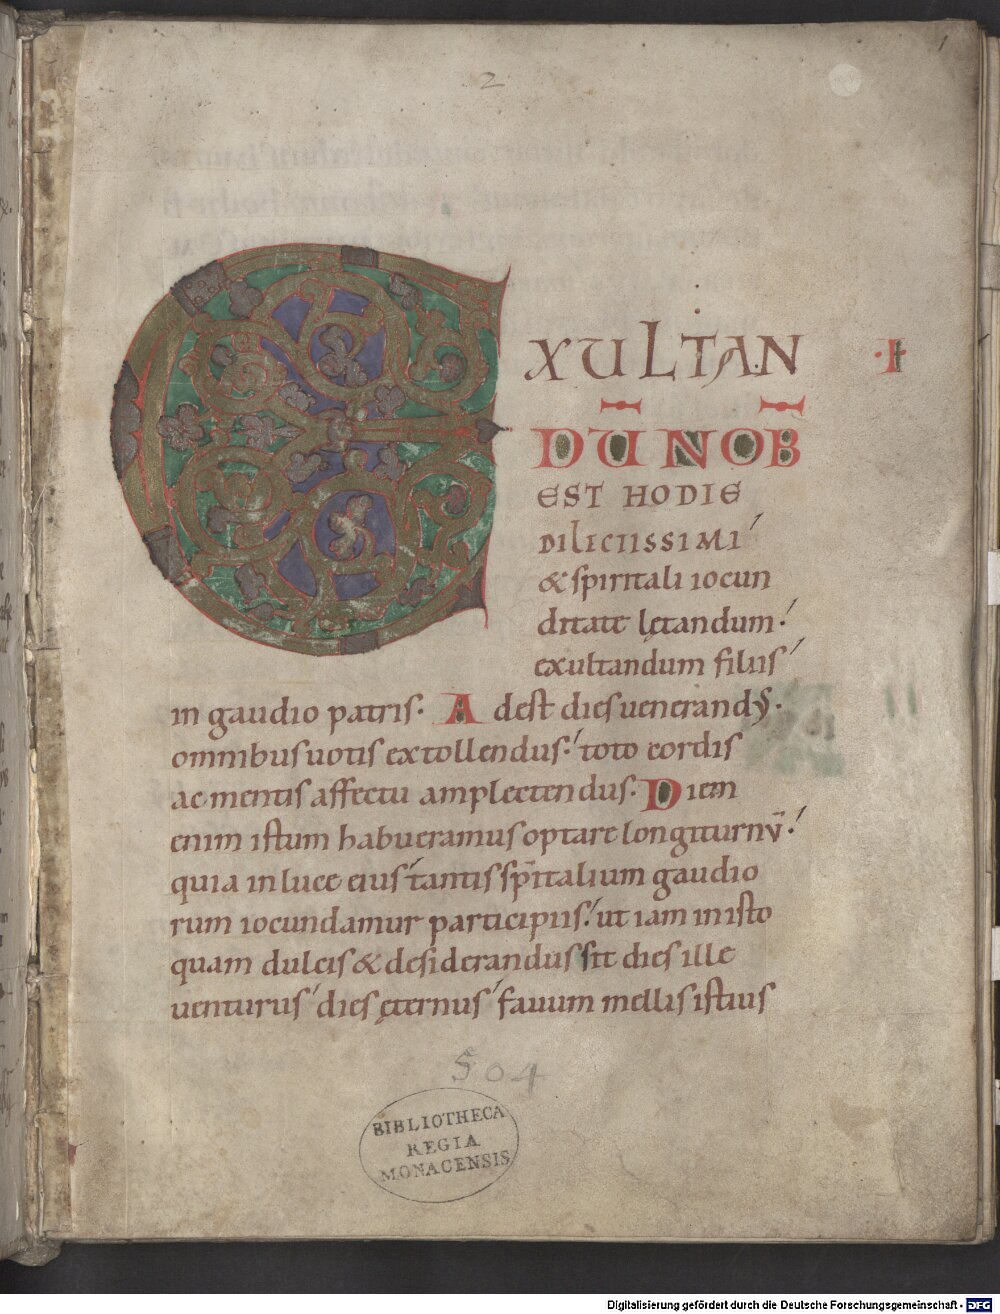 1
2
EXULTAN
·I·
DŪ NOB̄
EST HODIE
DILECTISSIMI
& spiritali iocun
ditate lętandum·
exultandum filiis
in gaudio patris· Adest dies uenerandus·
omnibus uotis extollendus· toto cordis
ac mentis affectu amplectendus· Diem
enim istum habueramus optare longiturnū·
quia in luce eius tantis sp̄italium gaudio
rum iocundamur participiis· ut iam in isto
quam dulcis & desiderandus sit dies ille
uenturus dies ęternus fauum mellis istius
504
BIBLIOTHECA
REGIA
MONACENSIS
Digitalisierung gefördert durch die Deutsche Forschungsgemeinschaft - DFG